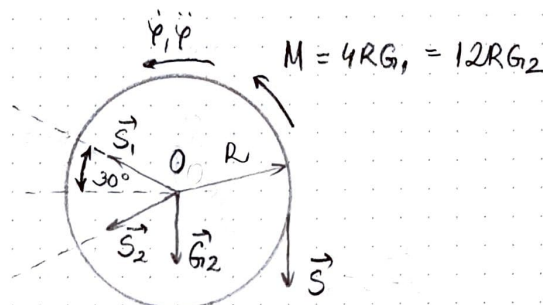 φ̇, φ̈
M = 4RG₁ = 12RG₂
S⃗₁
O
R
30°
S⃗₂
G⃗₂
S⃗